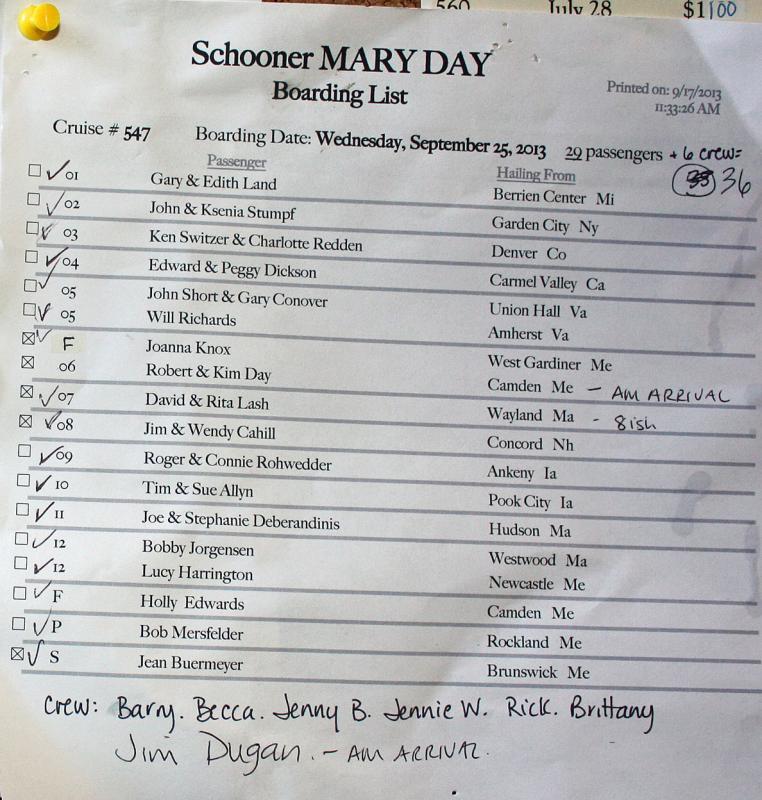 560 July 28 $1100
Schooner MARY DAY
Boarding List
Printed on: 9/17/2013
11:33:26 AM
Cruise # 547 Boarding Date: Wednesday, September 25, 2013 29 passengers + 6 crew=
35 36
Passenger Hailing From
01 Gary & Edith Land Berrien Center Mi
02 John & Ksenia Stumpf Garden City Ny
03 Ken Switzer & Charlotte Redden Denver Co
04 Edward & Peggy Dickson Carmel Valley Ca
05 John Short & Gary Conover Union Hall Va
05 Will Richards Amherst Va
F Joanna Knox West Gardiner Me
06 Robert & Kim Day Camden Me - AM ARRIVAL
07 David & Rita Lash Wayland Ma - 8ish
08 Jim & Wendy Cahill Concord Nh
09 Roger & Connie Rohwedder Ankeny Ia
10 Tim & Sue Allyn Pook City Ia
11 Joe & Stephanie Deberandinis Hudson Ma
12 Bobby Jorgensen Westwood Ma
12 Lucy Harrington Newcastle Me
F Holly Edwards Camden Me
P Bob Mersfelder Rockland Me
S Jean Buermeyer Brunswick Me
Crew: Barry. Becca. Jenny B. Jennie W. Rick. Brittany
Jim Dugan. - AM ARRIVAL.